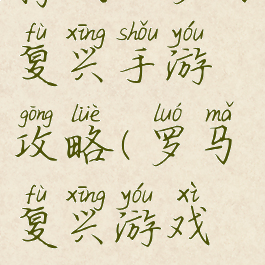 fù xīng shǒu yóu
复兴手游
gōng lüè luó mǎ
攻略(罗马
fù xīng yóu xì
复兴游戏